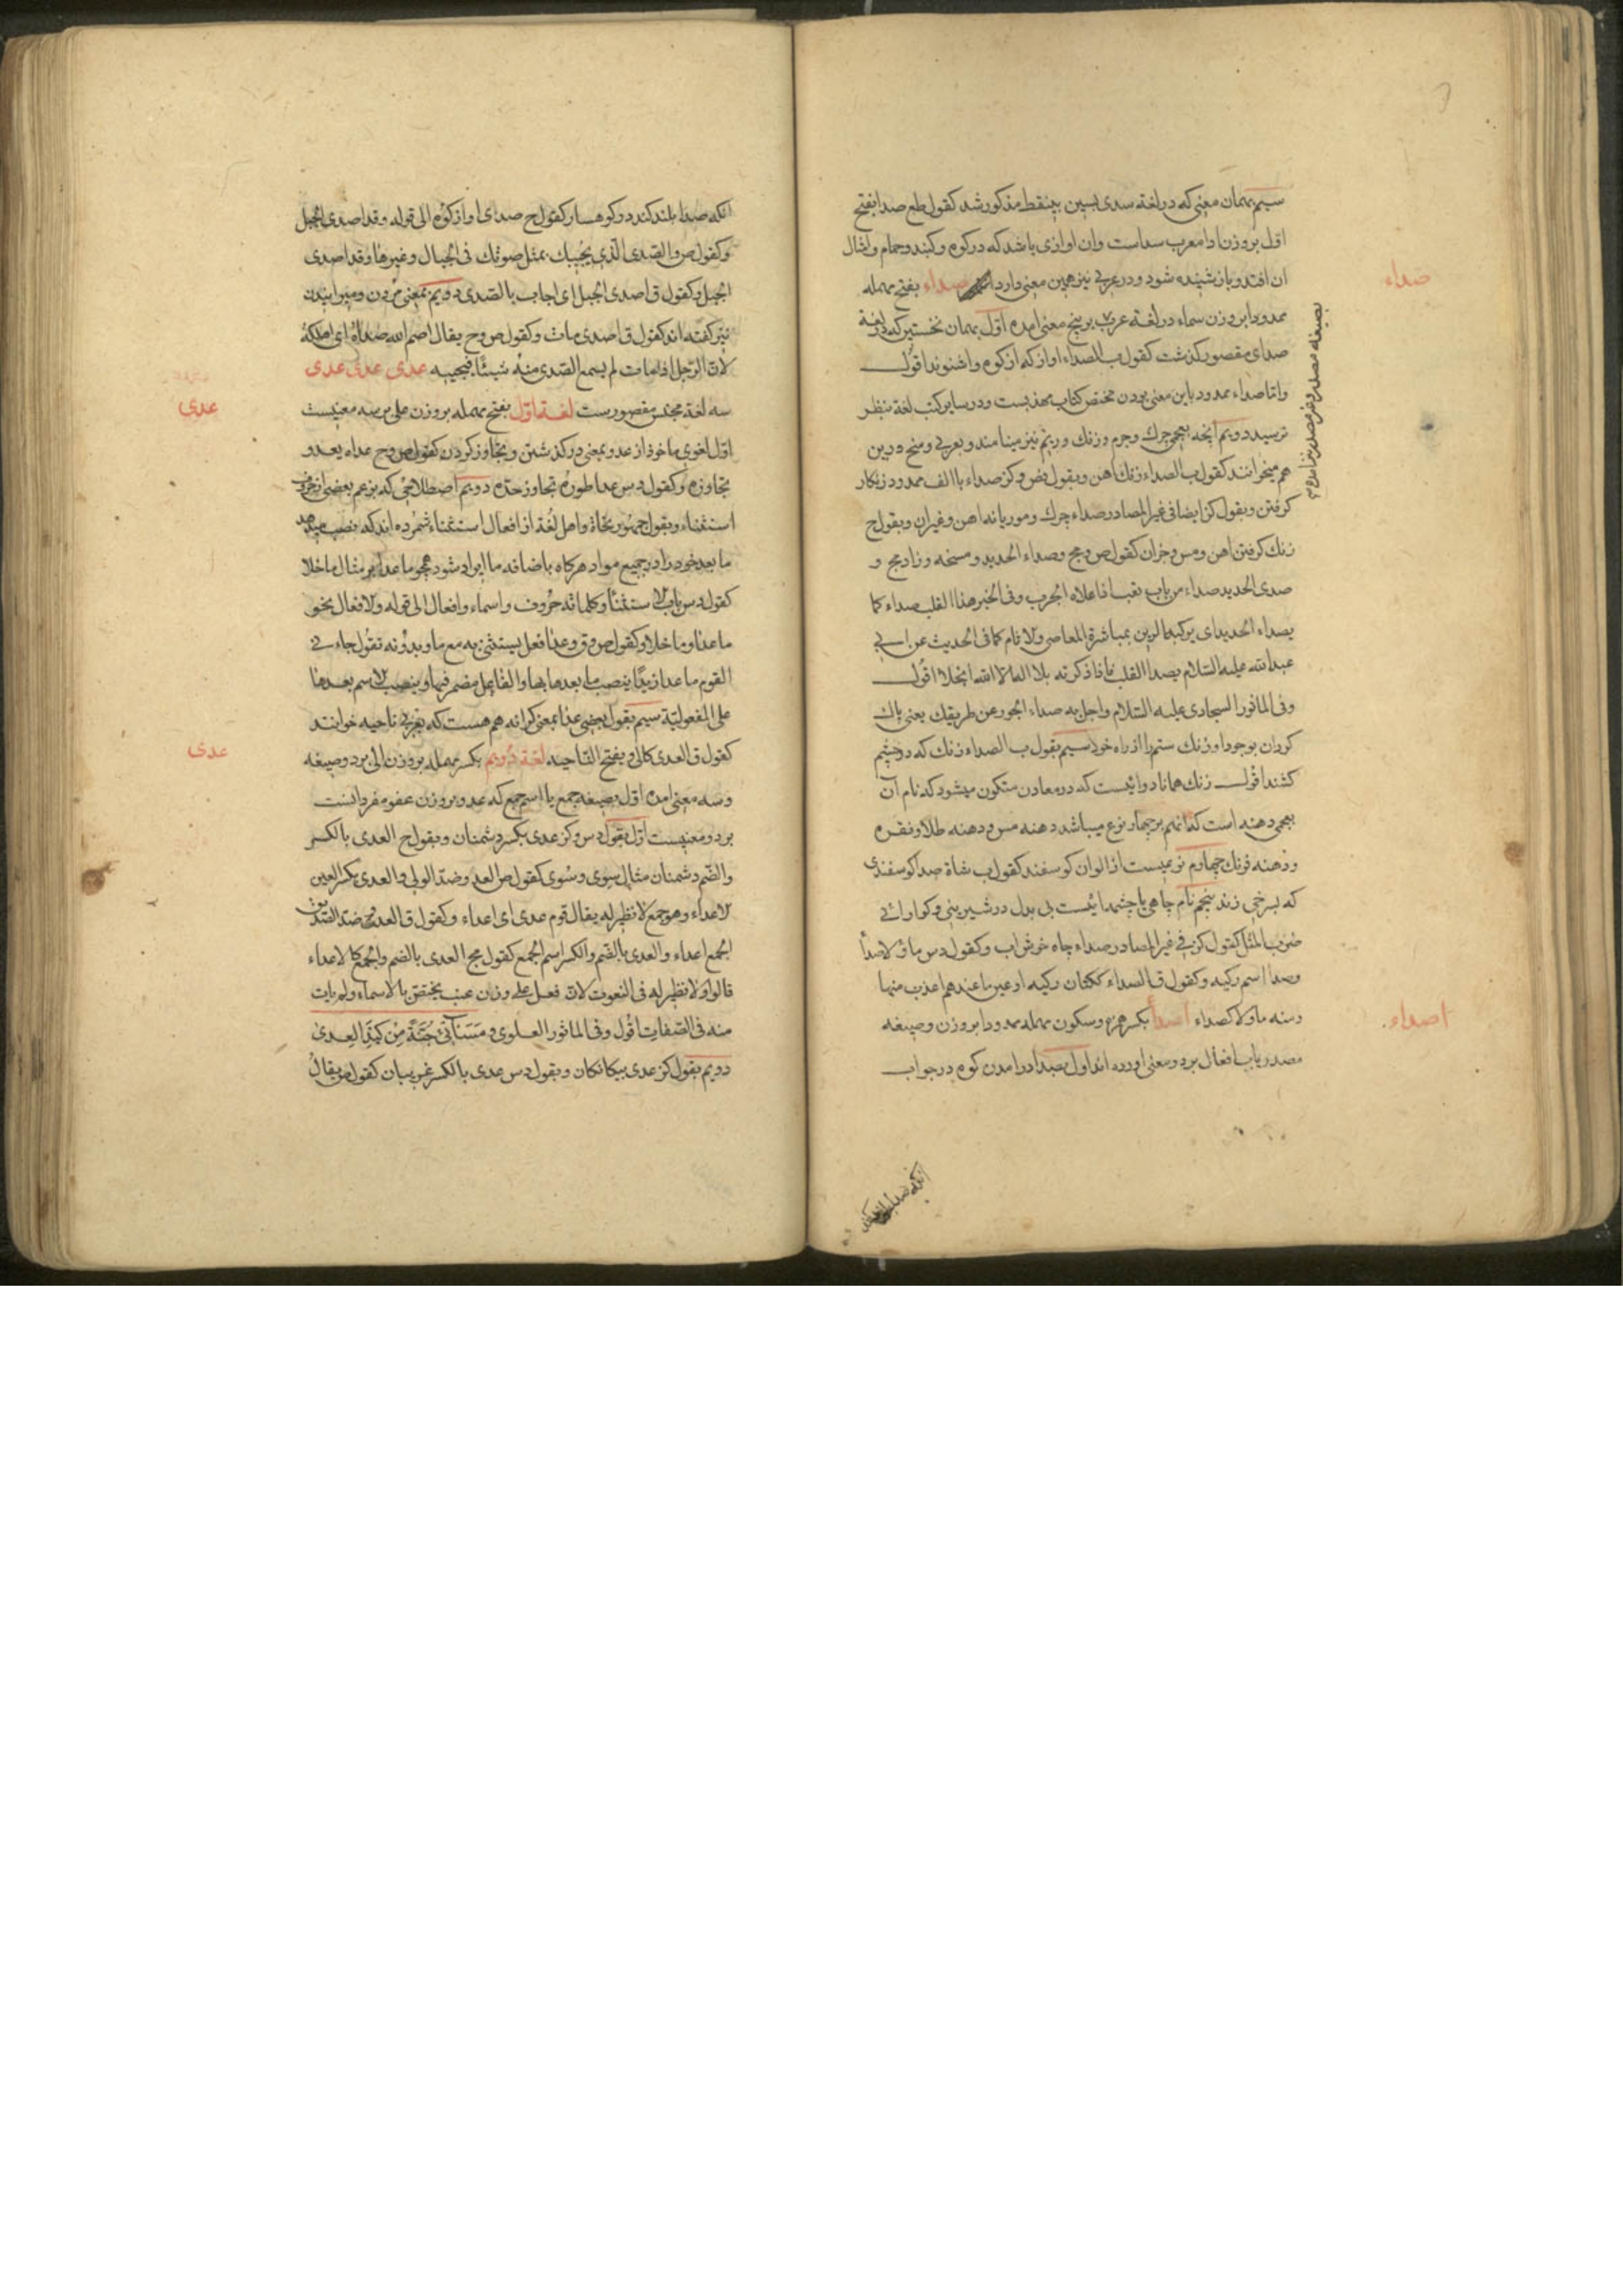 سیم بهمان معنی که در لغة سدی بسین بینقطه مذکور شد کقول طع صدا بفتح
اول بروزن ادا معرب سداست وان اوازی باشد که در کوه و کنبد و حمام و امثال
ان افتد و باز شنیده شود و در عربی نیز همین معنی دارد صداء بفتح مهمله
صداء
ممدودا بروزن سماء در لغة عرب بر پنج معنی امده اول بهمان نخستین که در لغة
صدای مقصور کذشت کقول ب الصداء اواز که از کوه واشنوند اقول
واما صداء ممدود باین معنی بودن مختص کتاب مهذبست و در سایر کتب لغة بنظر
نرسید دویم انچه بعجمی چرک و جرم و زنک و ریم نیز مینامند و بعربی وسخ و رین
هم میخوانند کقول ب الصداء زنک اهن وبقول کز صداء باالف ممدود زنکار
کرفتن وبقول کز ایضا فی غیر المصادر صداء چرک و موریانه اهن وغیران وبقول ح
زنک کرفتن اهن و مس و جزان کقول ص و مج وصداء الحدید وسخه وزاد مج و
صدی الحدید صداء من باب تعب اذا علاه الجرب وفی الخبر هذا القلب صداء کما
یصداء الحدید ای یرکبه الرین بمباشرة المعاصی والاثام کما فی الحدیث عن ابی
عبدالله علیه السلام یصدا القلب فاذا ذکرته بلا اله الا الله انجلا اقول
وفی الماثور السجادی علیه السلام واجل به صداء الجور عن طریقک یعنی پاک
کردان بوجود او زنک ستم را از راه خود سیم بقول ب الصداء زنک که در چشم
کشند اقول زنک همانا دوائیست که در معادن متکون میشود که نام آن
بعجمی دهنه است که انهم بر چهار نوع میباشد دهنه مس و دهنه طلا و نقره
ودهنه فرنک چهارم نوعیست از الوان کوسفند کقول ب شاة صدا کوسفندی
که بسرخی زند پنجم نام چاهی یا چشمه ایست بی بدل در شیرینی و کوارائی
ضرب المثل کقول کز فی غیر المصادر صداء چاه خوش اب وکقول دس ماؤ لا صدأ
وصدا اسم رکیه وکقول ق الصداء ککتان رکیه او عین ما عندهم اعذب منها
ومنه ماؤ لا کصداء اصدأ بکسر همزه وسکون مهمله ممدودا بروزن وصیغه
اصداء
مصدر باب افعال بر دو معنی اورده اند اول بصدا درامدن کوه در جواب
انکه صدا بلند کند در کوهسار کقول ح صدای اواز کوه الی قوله وقد اصدی الجبل
وکقول ص والصدی الذی یجیبک بمثل صوتک فی الجبال وغیرها وقد اصدی
الجبل وکقول ق اصدی الجبل ای اجاب بالصدی دویم بمعنی مردن ومیرانیدن
نیز کفته اند کقول ق اصدی مات وکقول ص و ح یقال اصم الله صداه ای اهلکه
لان الرجل اذا مات لم یسمع الصدی منه شیئا فیجیبه عدی عدی عدی
سه لغة مجنس مقصورست لغة اول بفتح مهمله بروزن علی بر سه معنیست
عدی
اول لغوی ماخوذ از عدو بمعنی درکذشتن وتجاوز کردن کقول ص و ح عداه یعدو
تجاوزه وکقول دس عدا طوره تجاوز حده دویم اصطلاحی که بزعم بعضی از حروف
استثناء وبقول جمهور نحاة واهل لغة از افعال استثناء شمرده اند که نصب میدهد
ما بعد خود را در جمیع مواد هرکاه باضافه ما ایراد شود همچو ما عدا بر مثال ما خلا
کقول دس باب الاستثناء وکلماته حروف واسماء وافعال الی قوله والافعال نحو
ما عدا وما خلا وکقول ص و ق وعدا فعل یستثنی به مع ما وبدونه تقول جاء نی
القوم ما عدا زیدا ینصب ما بعدها بها والفاعل مضمر فیها وینصب الاسم بعدها
علی المفعولیة سیم بقول بعضی عدا بمعنی کرانه هم هست که بعربی ناحیه خوانند
کقول ق العدی کالی ویفتح الناحیه لغة دویم بکسر مهمله بروزن الی بر دو صیغه
عدی
وسه معنی امده اول بصیغه جمع یا اسم جمع که عدو بروزن عفو مفرد انست
بر دو معنیست اول بقول دس وکز عدی بکسر دشمنان وبقول ح العدی بالکسر
والضم دشمنان مثال سوی وسوی کقول ص العدو ضد الولی والعدی بکسر العین
الاعداء وهو جمع لا نظیر له یقال قوم عدی ای اعداء وکقول ق العدو ضد الصدیق
الجمع اعداء والعدی بالضم والکسر اسم الجمع کقول مج العدی بالضم والجمع کالاعداء
قالوا ولا نظیر له فی النعوت لان فعل علی وزان عنب یختص بالاسماء ولم یات
منه فی الصفات اقول وفی الماثور العلوی ومسنأتی جنة من کید العدی
دویم بقول کز عدی بیکانکان وبقول دس عدی بالکسر غریبان کقول ص یقال